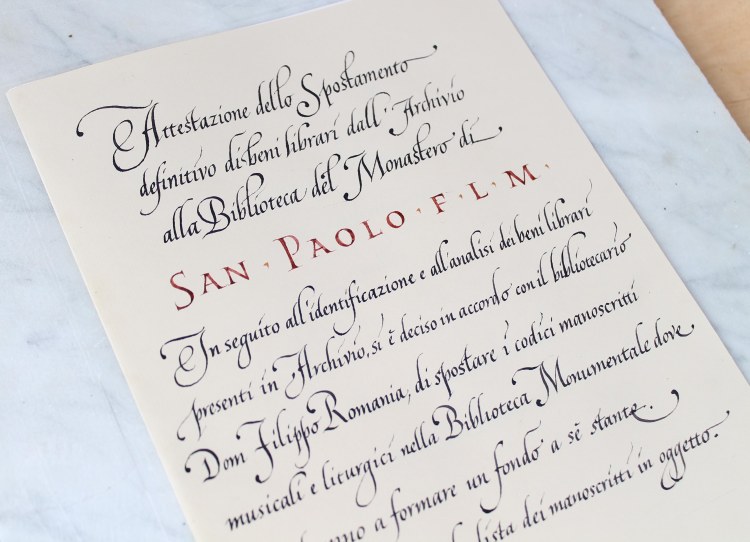 Attestazione dello Spostamento
definitivo di beni librari dall'Archivio
alla Biblioteca del Monastero di
SAN · PAOLO · F · L · M ·
In seguito all'identificazione e all'analisi dei beni librari
presenti in Archivio, si è deciso in accordo con il bibliotecario
Dom Filippo Romania, di spostare i codici manoscritti
musicali e liturgici nella Biblioteca Monumentale dove
a formare un fondo a sē stante.
lista dei manoscritti in oggetto.